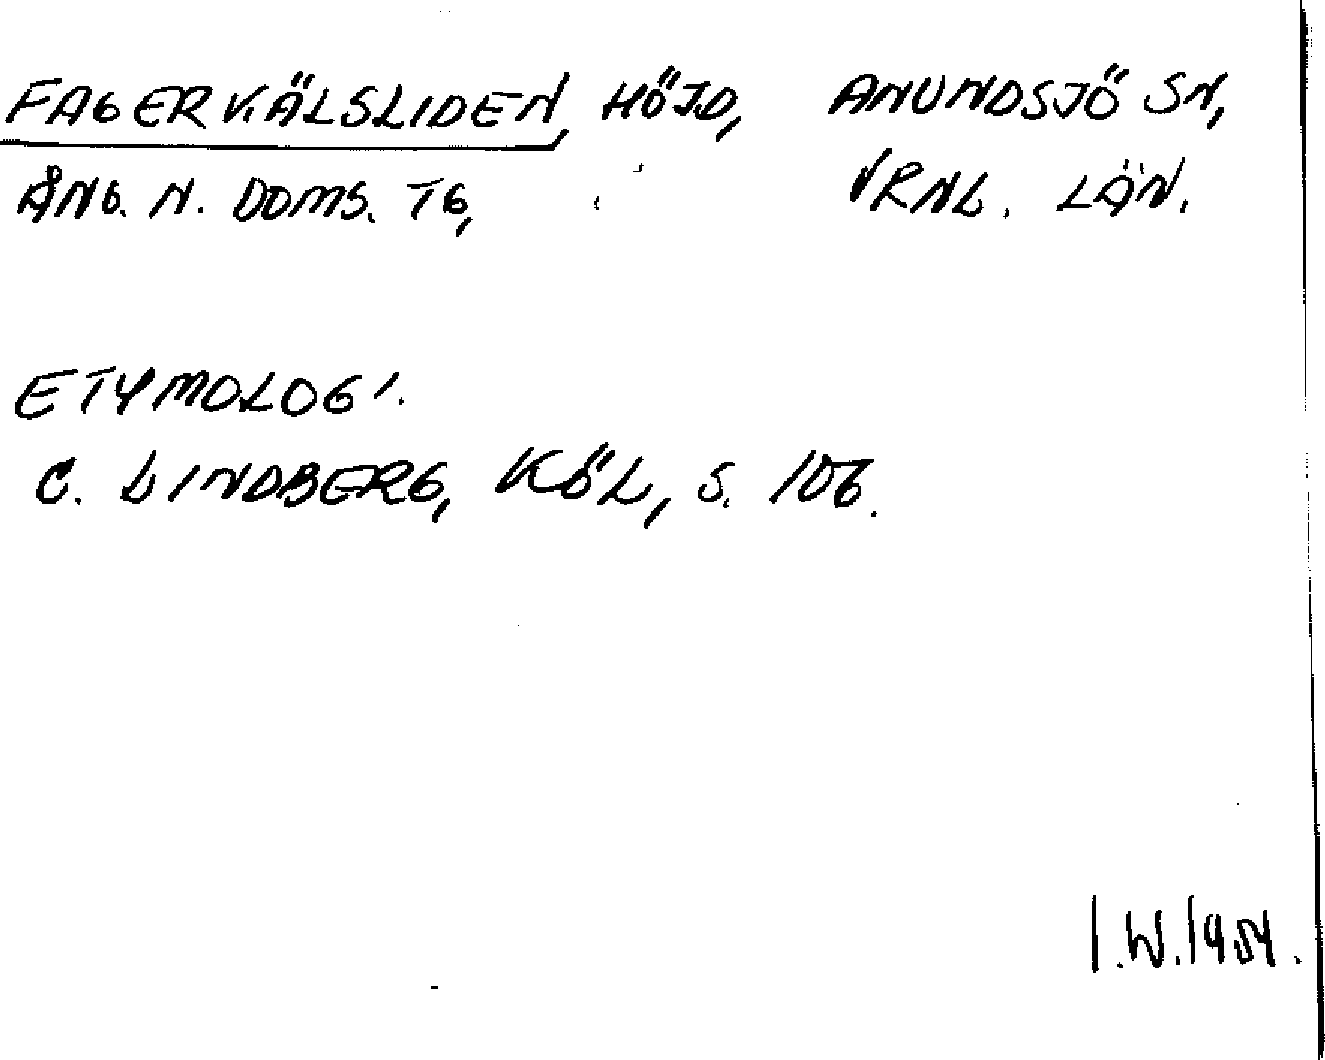 FAGERVÄLSLIDEN, HÖJD, ANUNDSJÖ SN,
ÅNG. N. DOMS. TG, VRNL. LÄN.
ETYMOLOGI.
C. LINDBERG, KÖL, S. 106.
I.W. 1954.